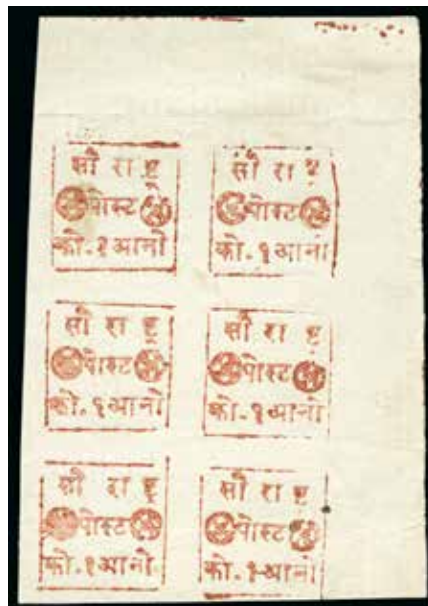 सौ रा ष्ट्र
पोस्ट
को. १ आनो
सौ रा ष्ट्र
पोस्ट
को. १ आनो
सौ रा ष्ट्र
पोस्ट
को. १ आनो
सौ रा ष्ट्र
पोस्ट
को. १ आनो
सौ रा ष्ट्र
पोस्ट
को. १ आनो
सौ रा ष्ट्र
पोस्ट
को. १ आनो